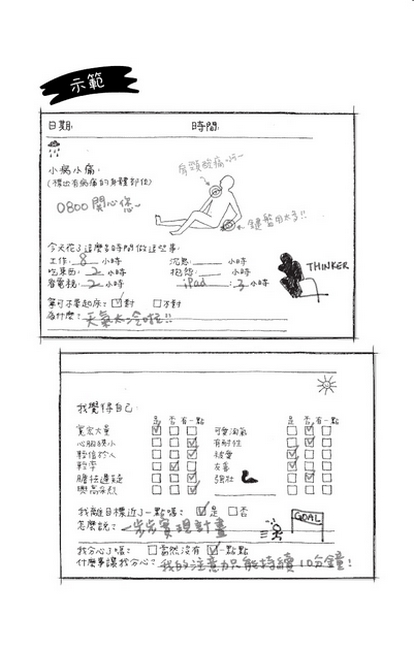 示範
日期: 時間:
小病小痛:
肩頸酸痛
(標出有病痛的身體部位)
0800 關心您~
鍵盤用太多!!
今天花了這麼多時間做這些事:
工作: 8 小時 沉思: 小時
吃東西: 2 小時 抱怨: 小時
看電視: 2 小時 iPad : 3 小時
THINKER
寧可不要起床: 對 不對
為什麼: 天氣太冷啦!!
我覺得自己:
是 否 有一點 是 否 有一點
寬宏大量 可愛淘氣
心胸狹小 有耐性
輕信於人 被愛
輕率 友善
膽怯遲疑 強壯
興高采烈
我離目標近了一點嗎: 是 否
GOAL
怎麼說: 一步步實現計畫
我分心了嗎: 當然沒有 一點點
什麼事讓我分心: 我的注意力只能持續10分鐘!